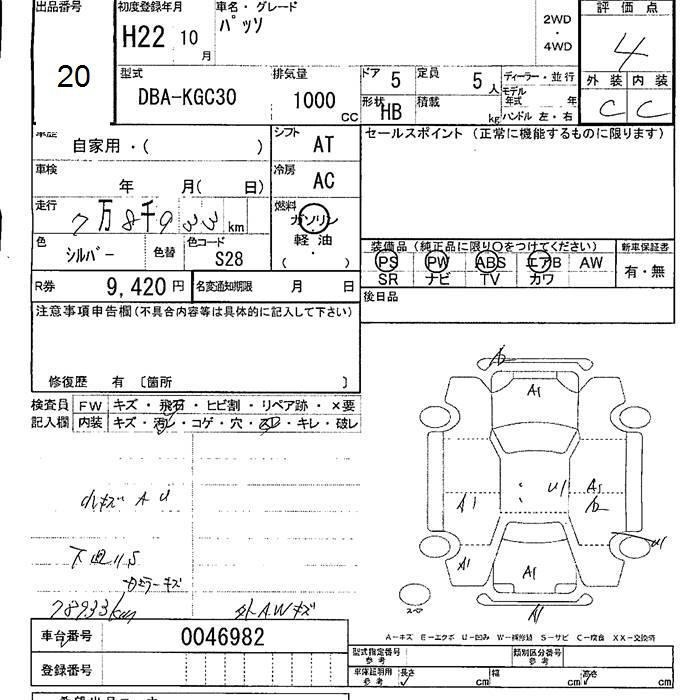 出品番号 初度登録年月 車名・グレード 評価点
H22 10月 パッソ 2WD・4WD 4
20
型式 排気量 ドア 5 定員 5人 ディーラー・並行 外装 内装
DBA-KGC30 1000 CC 形状 HB 積載 kg モデル年式 年 C C
ハンドル 左・右
車歴 自家用・( ) シフト AT セールスポイント(正常に機能するものに限ります)
車検 年 月( 日) 冷房 AC
走行 7万8千933 km 燃料 ガソリン
軽油
( ・ )
色 シルバー 色替 色コード S28
装備品(純正品に限り〇をつけてください) 新車保証書
PS PW ABS エアB AW 有・無
SR ナビ TV カワ
R券 9,420円 名変通知期限 月 日 後日品
注意事項申告欄(不具合内容等は具体的に記入して下さい)
修復歴 有 〔箇所 〕
検査員 FW キズ・飛石・ヒビ割・リペア跡・×要
記入欄 内装 キズ・汚レ・コゲ・穴・スレ・キレ・破レ
A1
U1 A1
A1
小キズ A U
A1
下回りS
A1
78933km 外AWキズ
スペ
A-キズ E-エクボ U-凹み W-補修跡 S-サビ C-腐食 XX-交換済
車台番号 0046982
型式指定番号 参考 類別区分番号 参考
登録番号 車庫証明用 参考 長さ cm 幅 cm 高さ cm